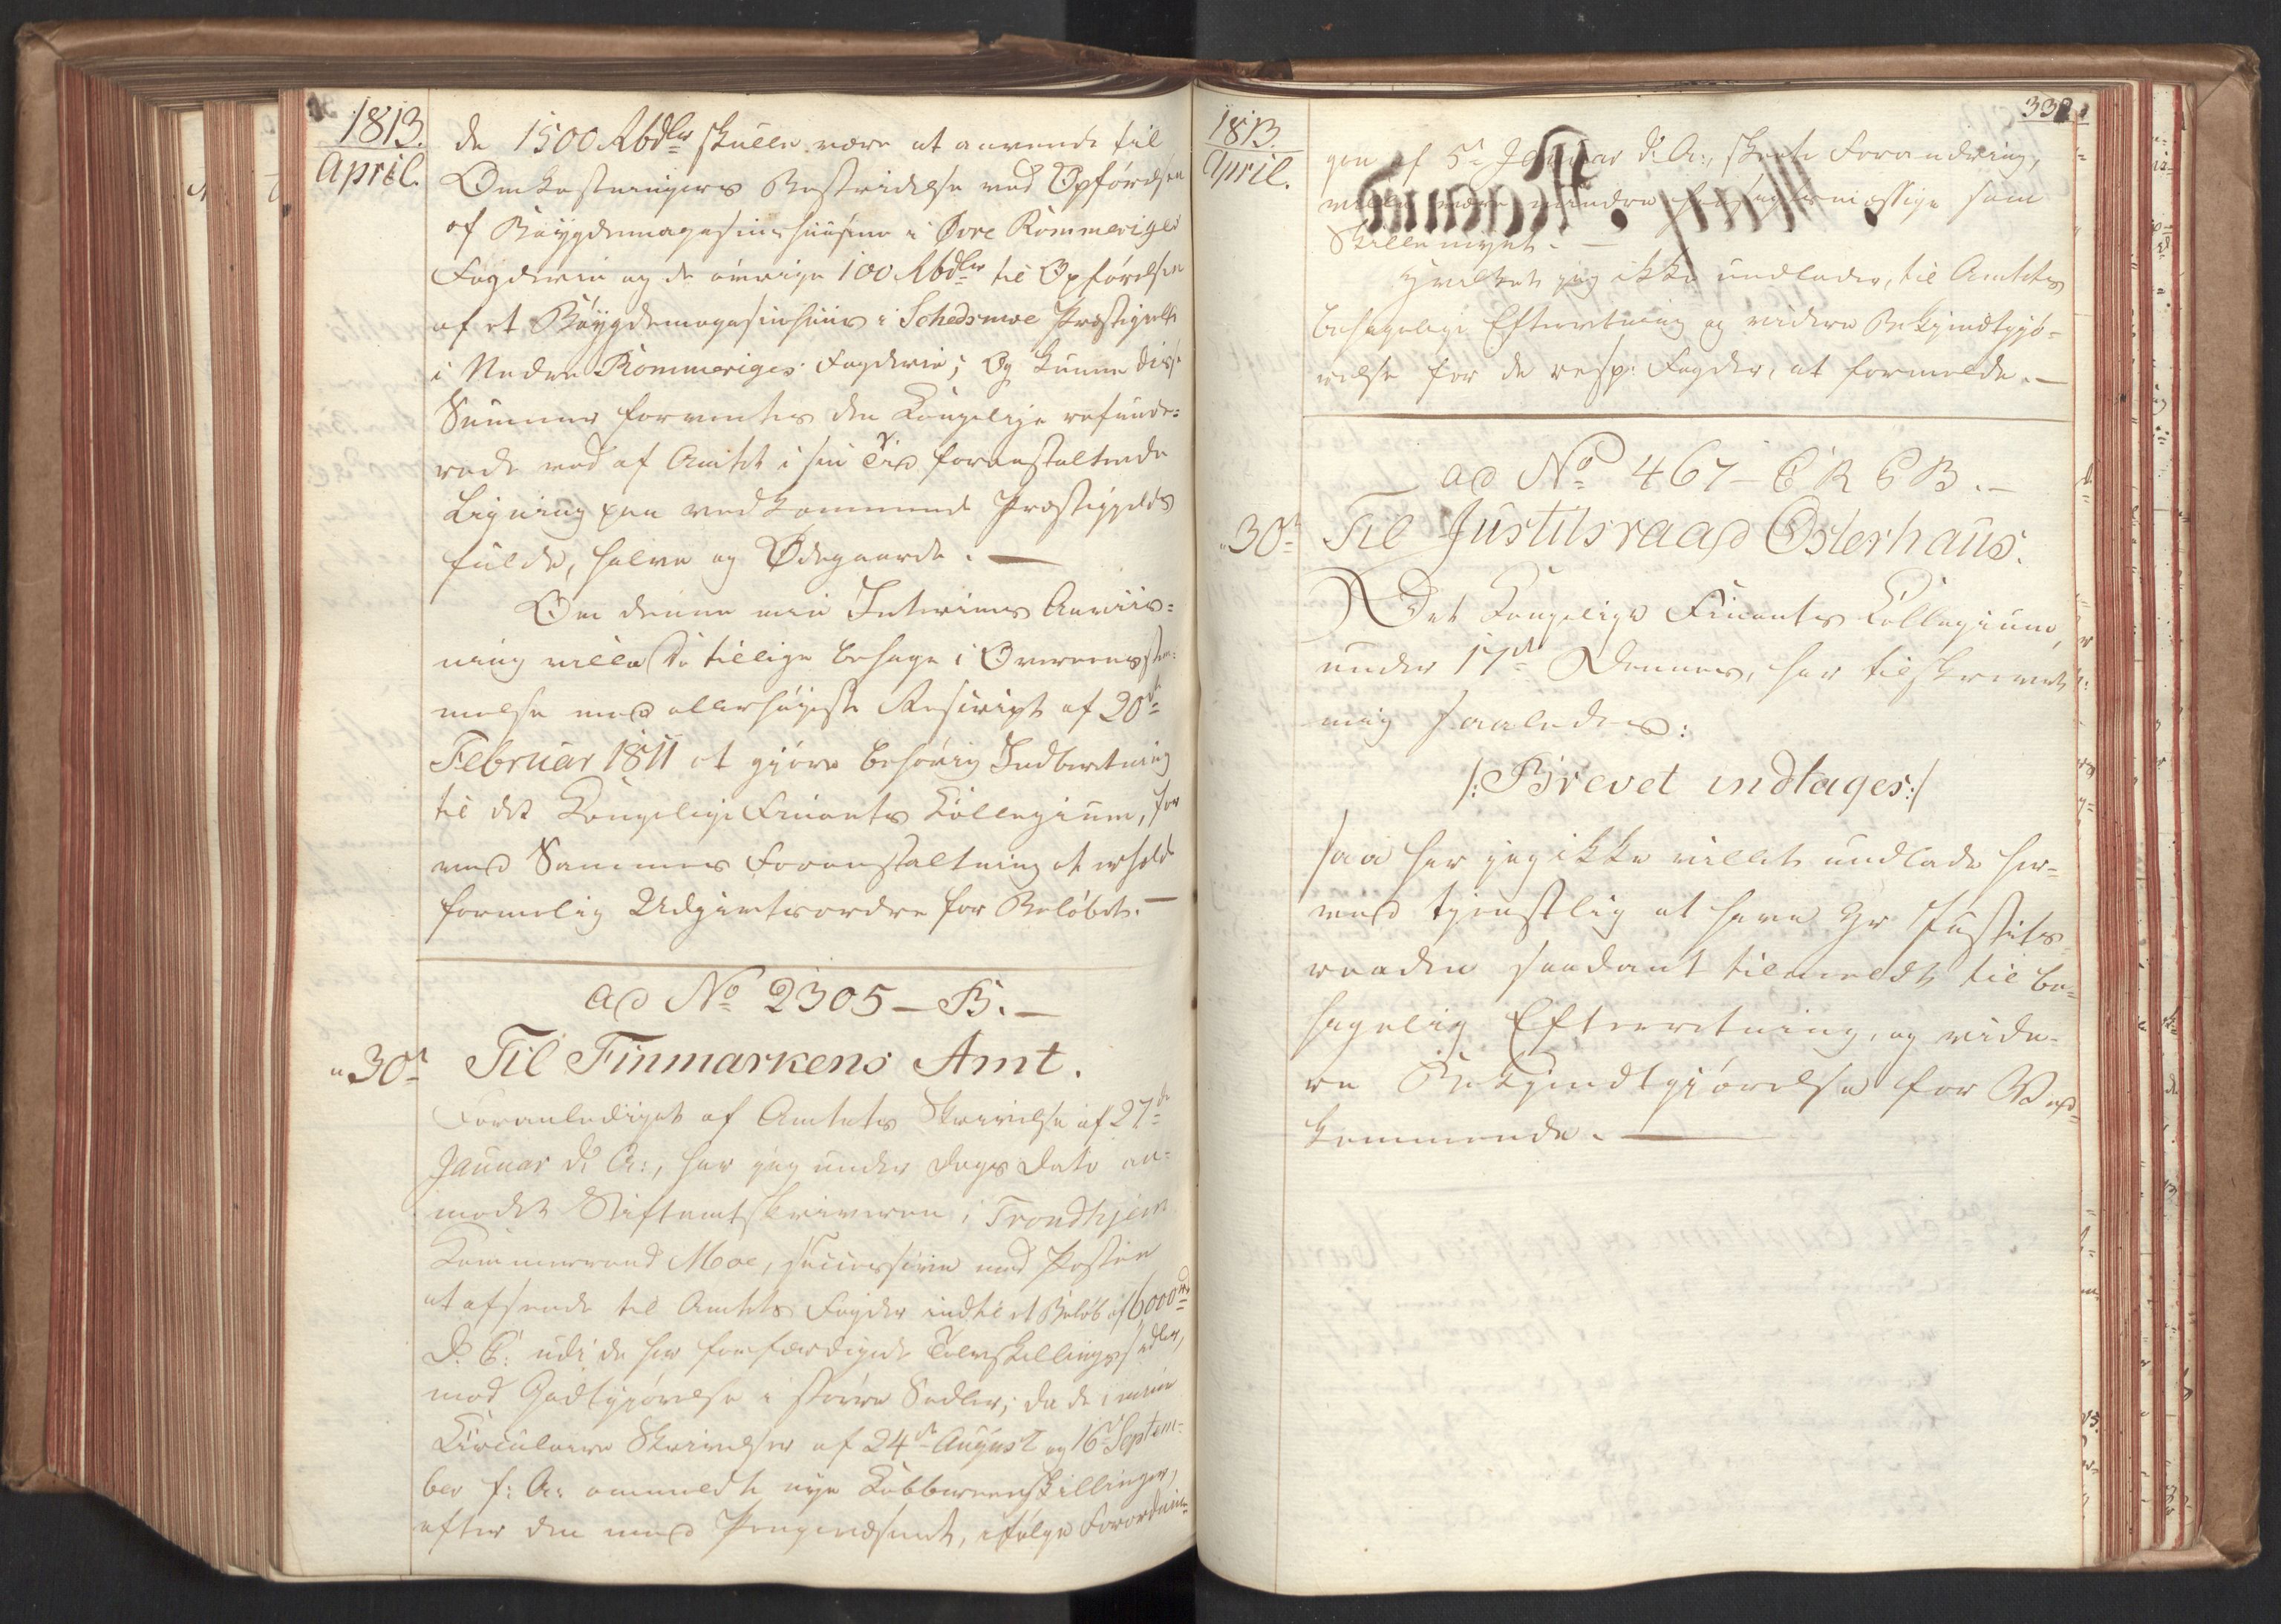 1813.
April.
de 1500 Rbdlr skulle være at anvende til
Omkostningers Bestridelse ved Opførelsen
af Bøygdemagasinshuusene i Øvre Rommeriges
Fogderie og de øvrige 100 Rbdlr til Opførelsen
af et Bøygdemagasinhuus i Schedsmoe Præstegield
i Nedre Rommeriges Fogderie; Og kunne disse
Summer forventes den Kongelige refunde-
rede ved af Amtet i sin Tid foranstaltende
Ligning paa vedkommende Præstegjelds
fulde, halve og Ødegaarde. —
Om denne min Interims Anviis-
ning ville De tillige behage i Overeensstem-
melse med allerhøieste Rescript af 20de
Februar 1811 at gjøre behørig Indberetning
til det Kongelige Finants Collegium, for
ved Sammes Foranstaltning at erholde
formelig Udgivtsordre for Beløbet. —
ad No 2305 - B. —
"30te Til Finmarkens Amt.
Foranlediget af Amtets Skrivelse af 27de
Januar d: A:, har jeg under Dags Dato an-
modet Stiftamtskriveren i Trondhjem
Kammerraad Moe, successive med Posten
at afsende til Amtets Fogder indtil et Beløb af 6000 rd
D. C: udi de her forfærdigede Tolvskillingssedler,
mod Godtgjørelse i større Sedler; da de i min
Circulaire Skrivelser af 24de August og 16de Septem-
ber f: A: ommeldte nye Kobbereenskillinger,
efter den med Pengevæsenet, ifølge Forordnin-
1813.
April.
332
gen af 5te Januar d: A:, skeete Forandring,
ville være mindre hensigtsmæssige som
Skillemynt. —
Hvilket jeg ikke undlader, til Amtets
behagelige Efterretning og videre Bekjendtgjø-
relse for de resp: Fogder, at formelde. —
ad No 467 - C R C B. —
"30te Til Justitsraad Osterhaus.
Det Kongelige Finants Collegium,
under 17de Dennes, har tilskrevet
mig saaledes:
/: Brevet indtages :/
saa har jeg ikke villet undlade her-
ved tjenstlig at have Hr Justits-
raaden saadant tilmeldt til be-
hagelig Efterretning, og vide-
re Bekjendtgjørelse for Ved-
kommende. —